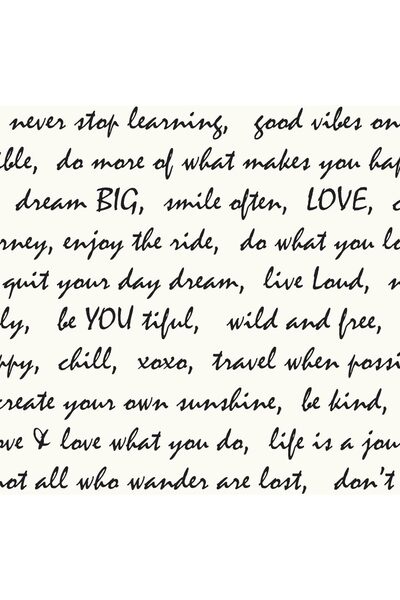 never stop learning, good vibes on
ible, do more of what makes you hap
dream BIG, smile often, LOVE,
rney, enjoy the ride, do what you lo
quit your day dream, live Loud,
ly, be YOU tiful, wild and free,
ppy, chill, xoxo, travel when possi
create your own sunshine, be kind,
ove & love what you do, life is a jou
not all who wander are lost, don't